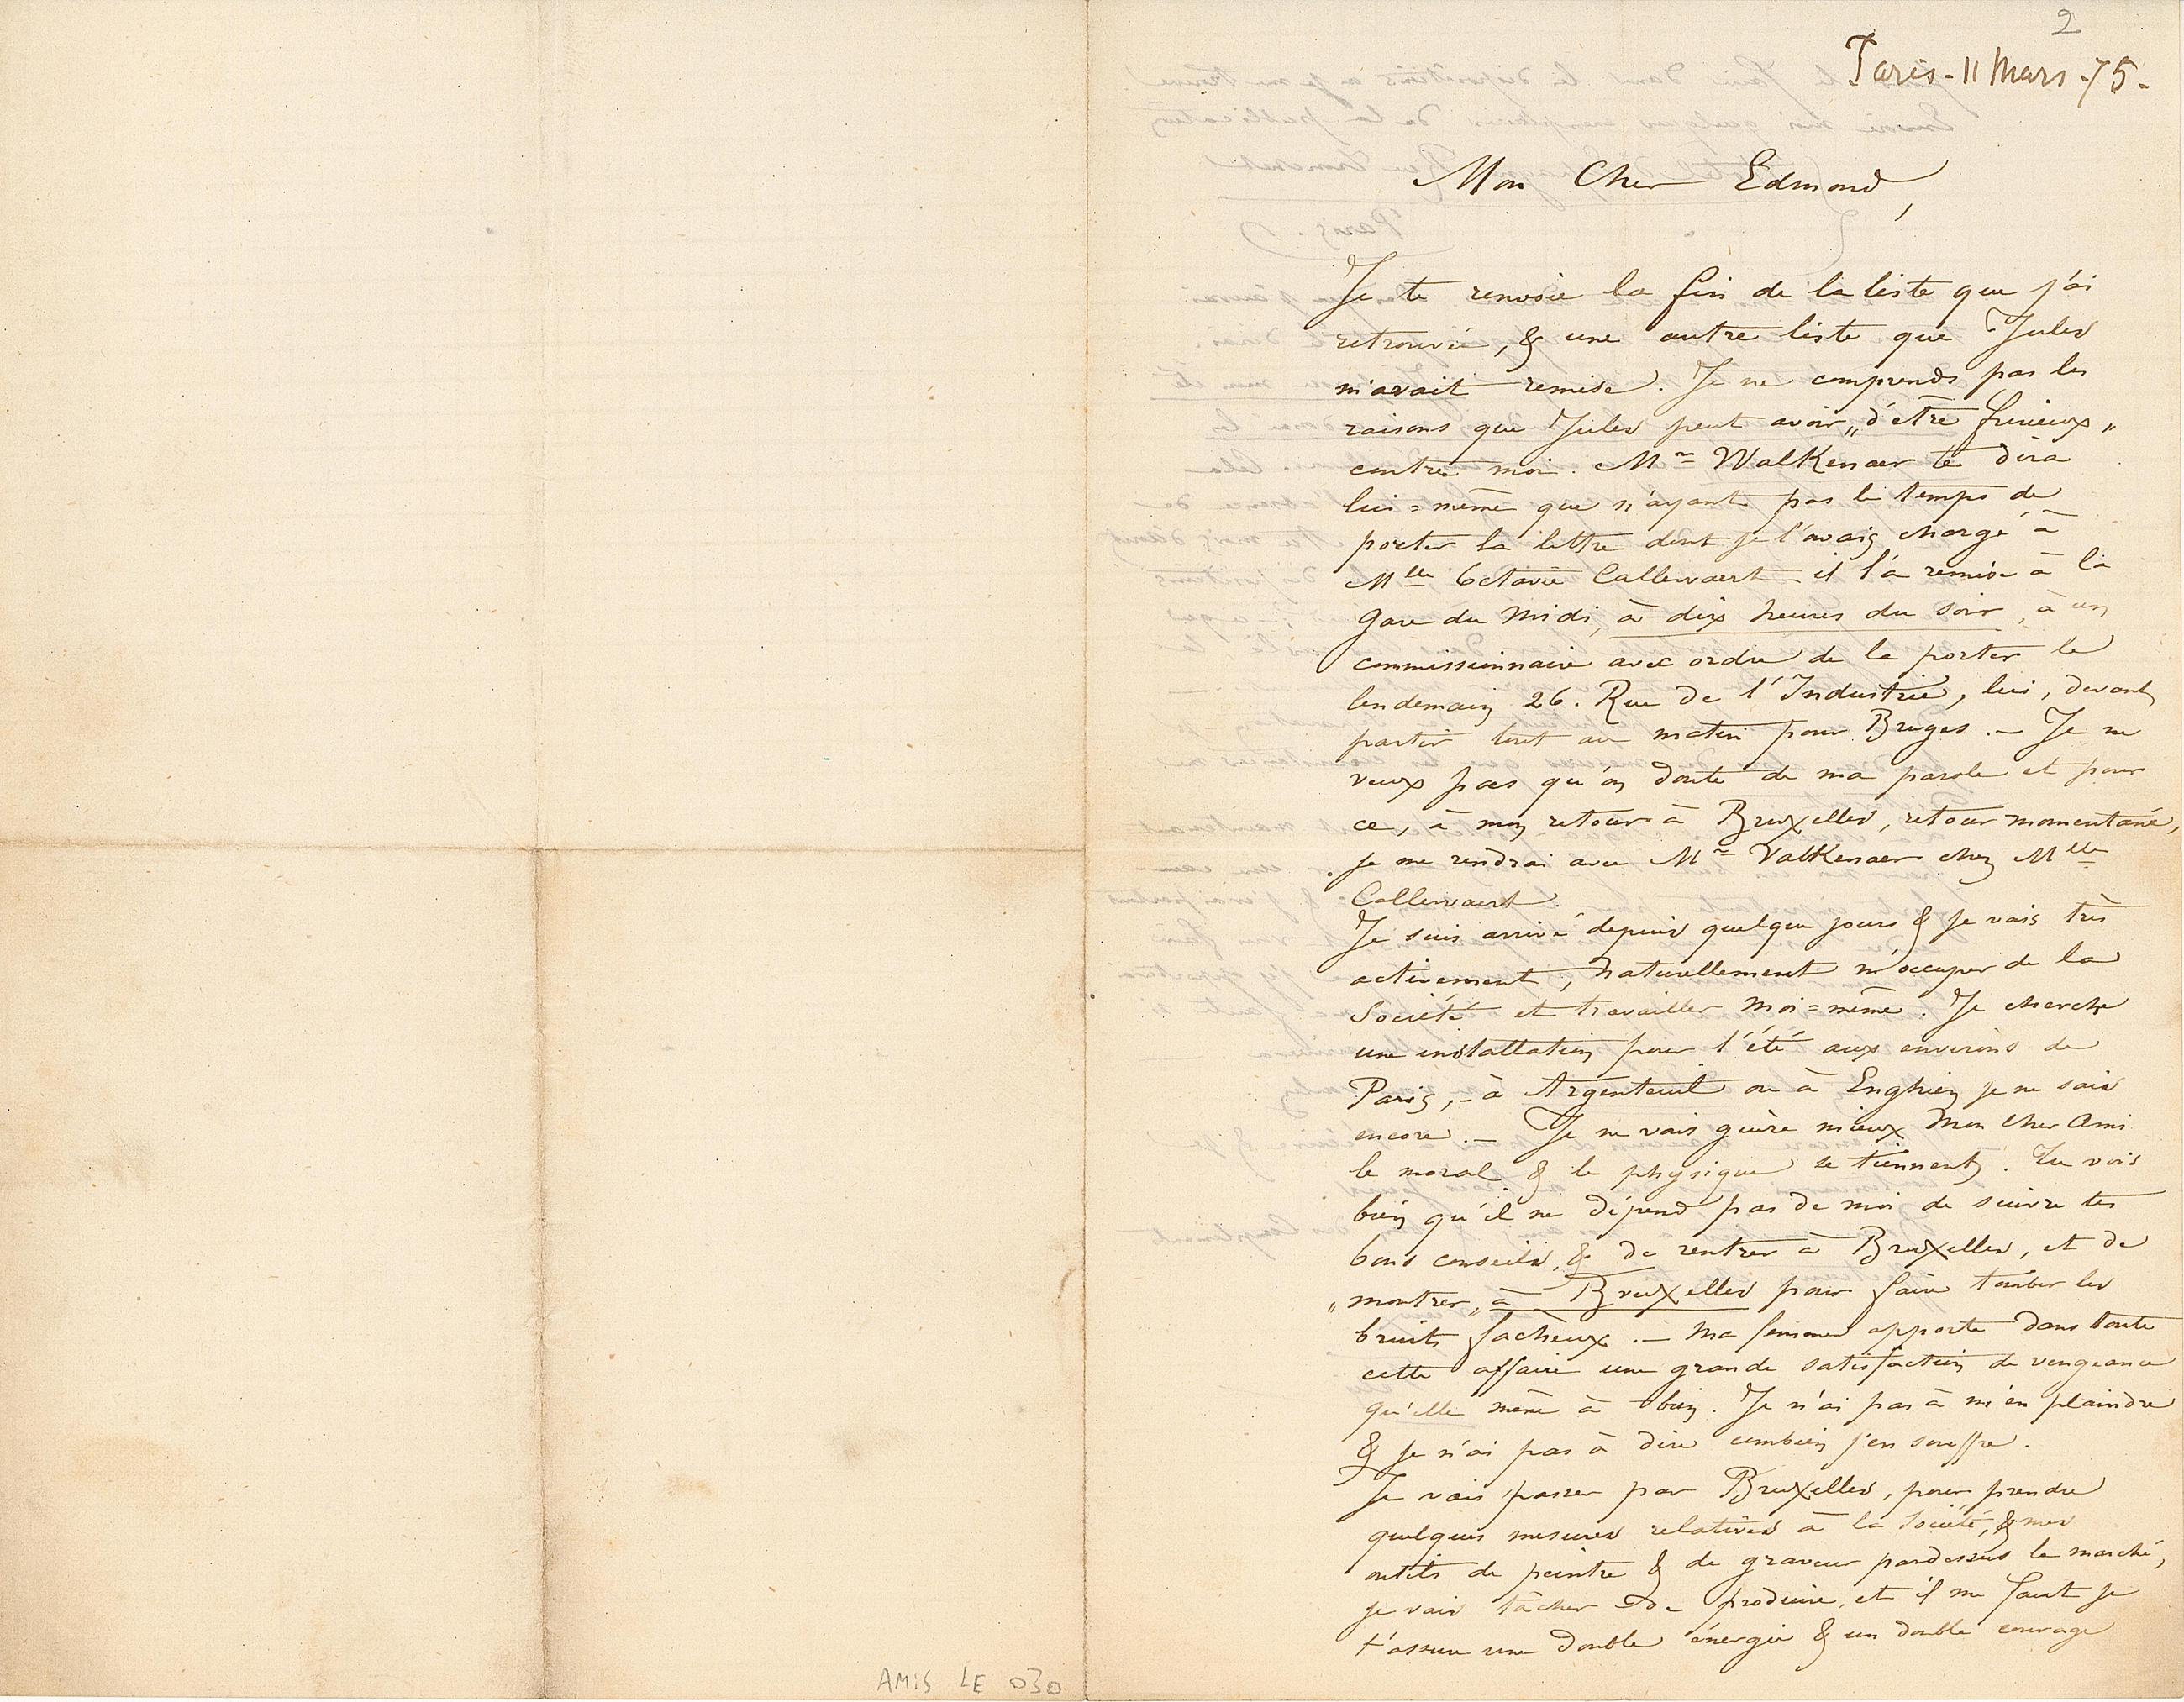 2
Paris - 11 Mars - 75 -
Mon Cher Edmond,
Je te renvoie la fin de la liste que j'ai
retrouvée, & une autre liste que Jules
m'avait remise. Je ne comprends pas les
raisons que Jules peut avoir „d'être furieux„
contre moi. Mr Walkenaer te dira
lui=même que n'ayant pas le temps de
porter la lettre dont je l'avais chargé à
Mlle Octavie Callewaert il l'a remise à la
gare du Midi, à dix heures du soir, à un
commissionnaire avec ordre de la porter le
lendemain 26. Rue de l'Industrie, lui, devant
partir tout au matin pour Bruges. – Je ne
veux pas qu'on doute de ma parole et pour
ce, à mon retour à Bruxelles, retour momentané,
je me rendrai avec Mr Valkenaer chez Mlle
Callewaert.
Je suis arrivé depuis quelque jours & je vais très
activement, naturellement m'occuper de la
Société et travailler moi=même. Je cherche
une installation pour l'été aux environs de
Paris, – à Argenteuil ou à Enghien je ne sais
encore. – Je ne vais guère mieux Mon cher Ami
le moral & le physique se tiennent. Tu vois
bien qu'il ne dépend pas de moi de suivre tes
bons conseils, & de rentrer à Bruxelles, et de
„montrer„ à Bruxelles pour faire tomber les
bruits facheux. – Ma femme apporte dans toute
cette affaire une grande satisfaction de vengeance
qu'elle mène à bien. Je n'ai pas à m'en plaindre
& je n'ai pas à dire combien j'en souffre.
Je vais passer par Bruxelles, pour prendre
quelques mesures relatives à la Société, & mes
outils de peintre & de graveur pardessus le marché,
je vais tâcher de produire, et il me faut je
t'assure une double énergie & un double courage
AMIS LE 030